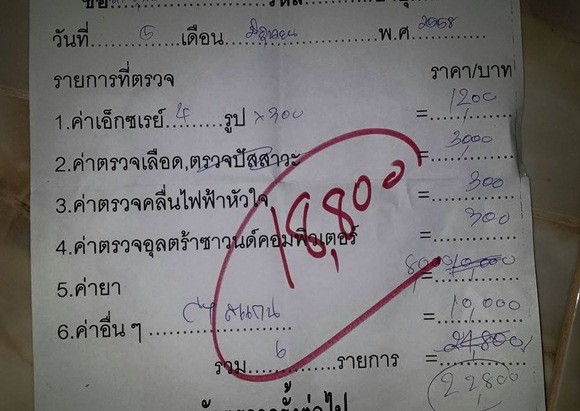 วันที่ ๖ เดือน มิถุนายน พ.ศ. 2558
รายการที่ตรวจ ราคา/บาท
1.ค่าเอ็กซเรย์ 4 รูป x 300 = 1200
2.ค่าตรวจเลือด,ตรวจปัสสาวะ = 3000
3.ค่าตรวจคลื่นไฟฟ้าหัวใจ = 300
4.ค่าตรวจอุลตร้าซาวนด์คอมพิวเตอร์ = 300
18,800
5.ค่ายา = 10,000
6.ค่าอื่น ๆ สแกน = 10,000
รวม 6 รายการ = 24,800
22,800